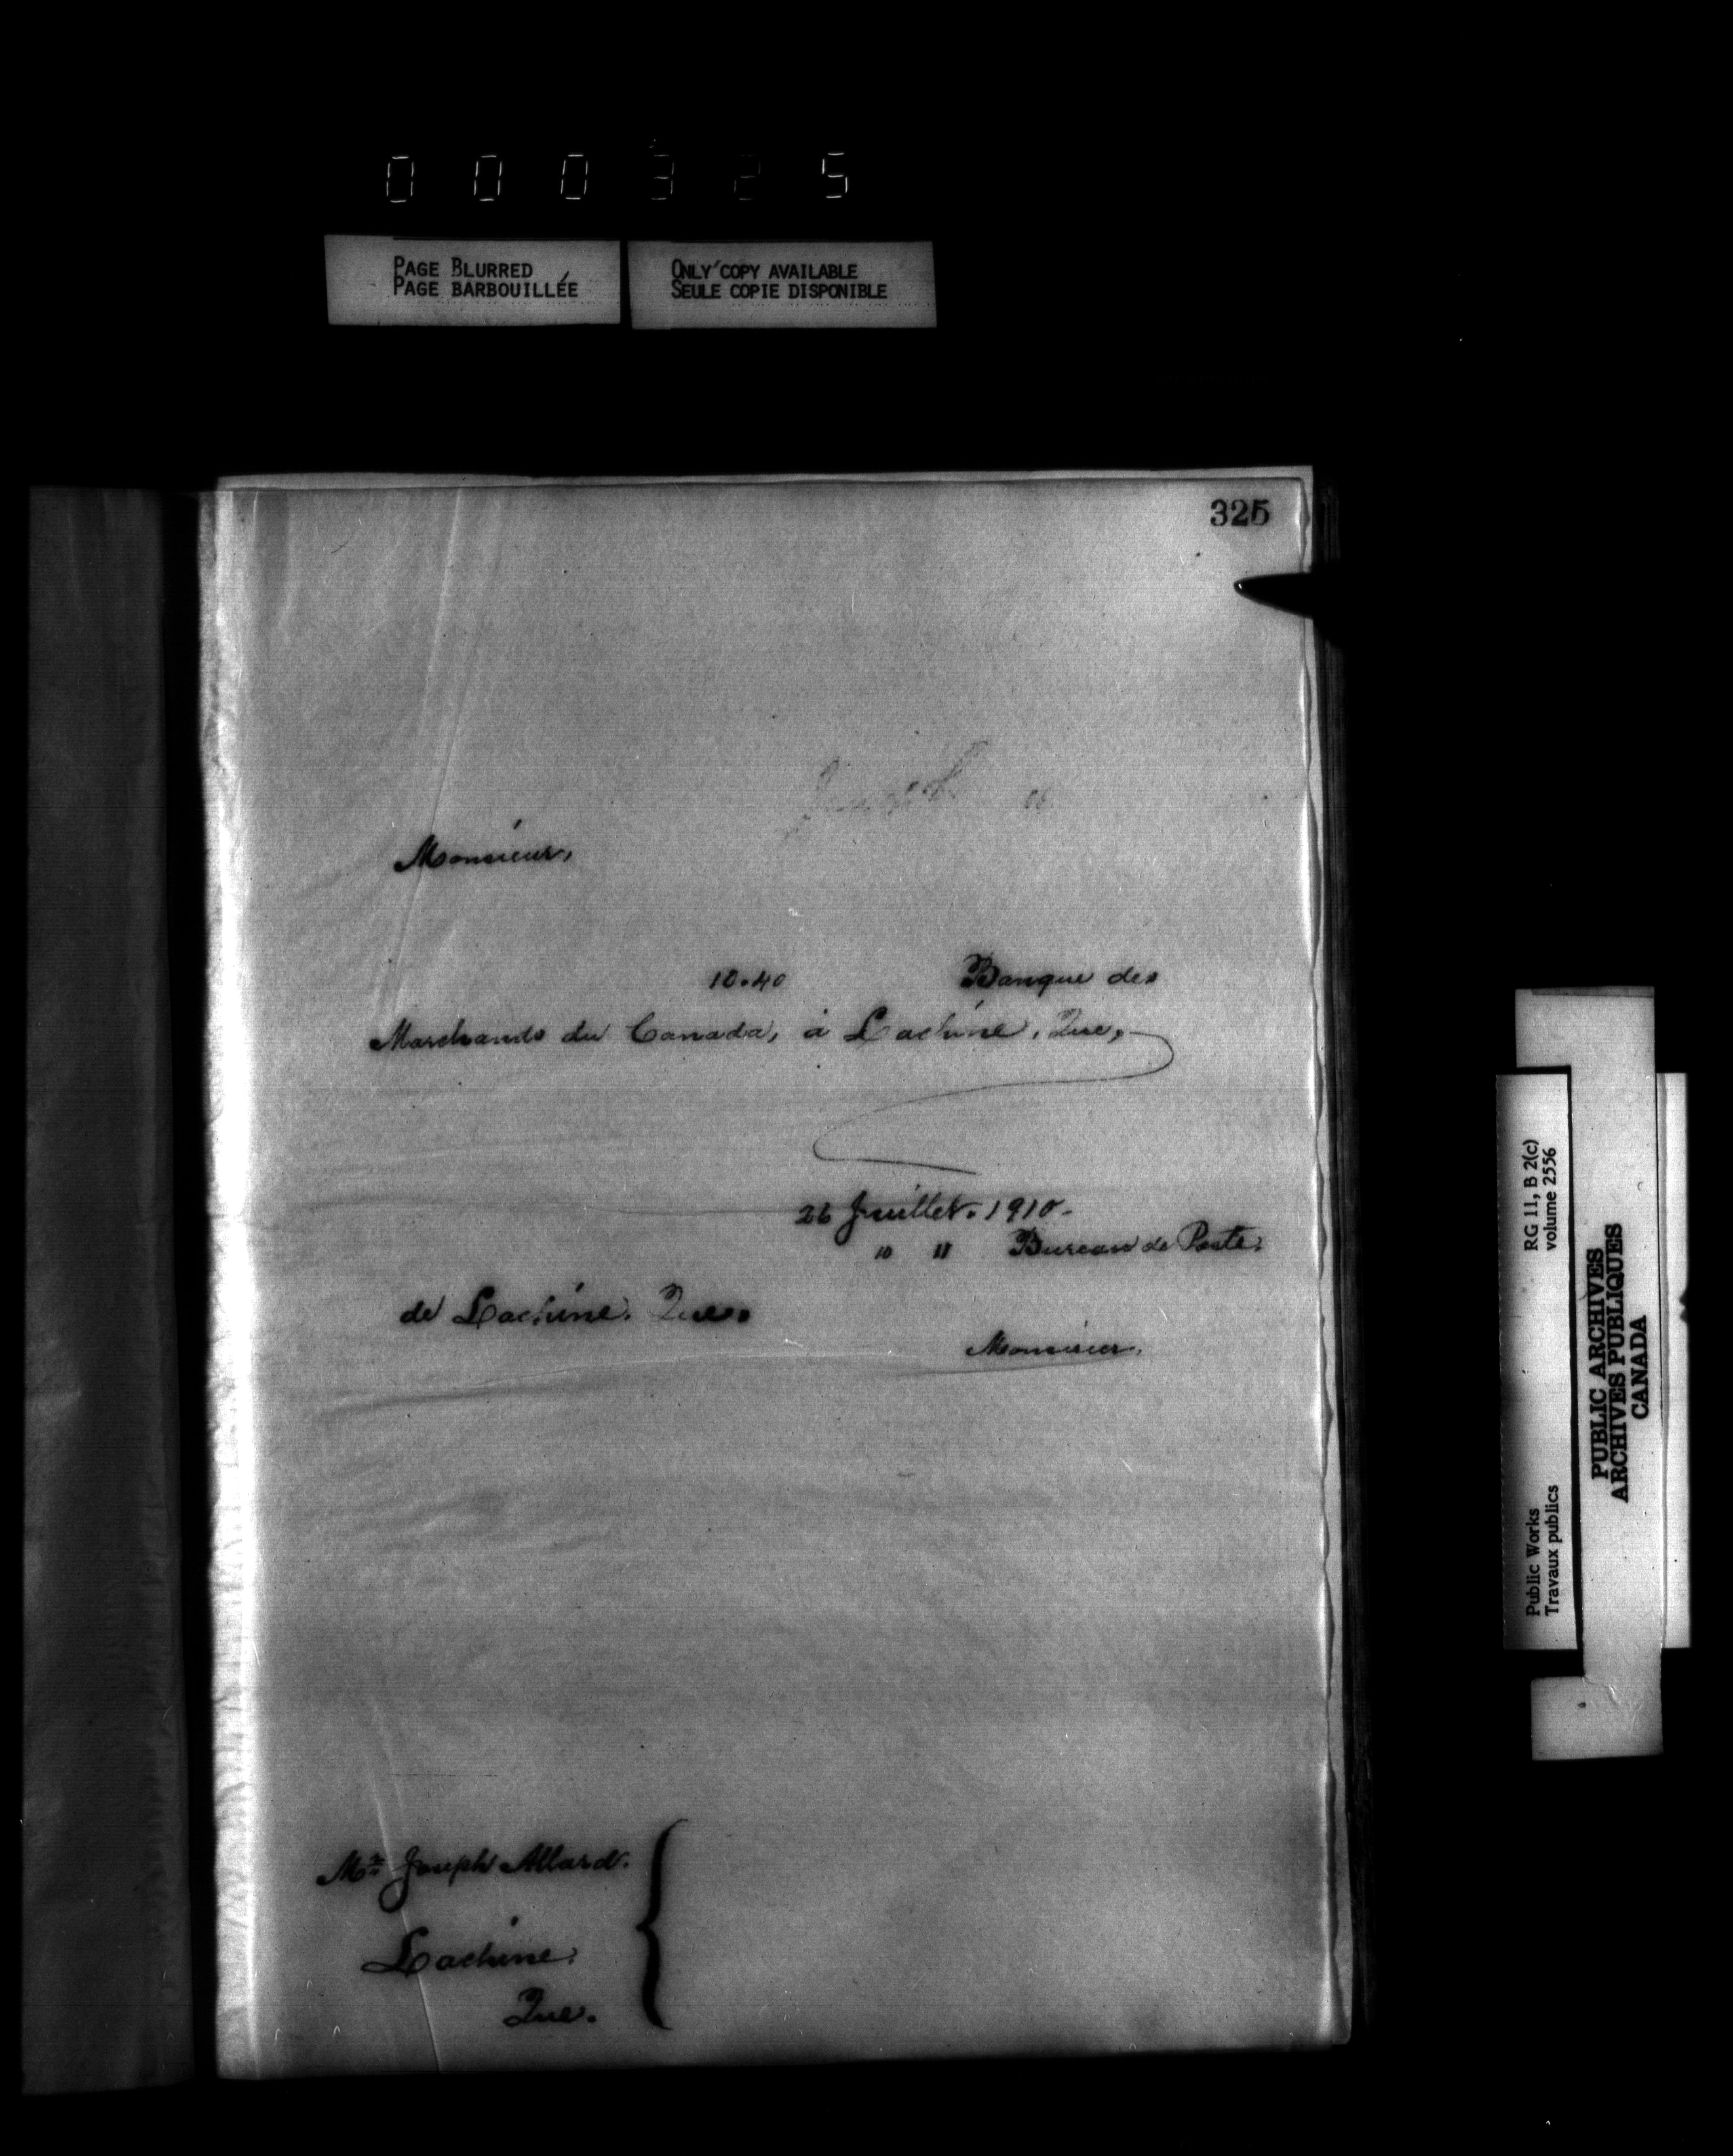 000325
PAGE BLURRED
PAGE BARBOUILLÉE
ONLY COPY AVAILABLE
SEULE COPIE DISPONIBLE
325
Monsieur,
10.40 Banque des
Marchands du Canada, à Lachine, Que,
26 Juillet. 1910-
10 11 Bureau de Poste.
de Lachine. Que.
Monsieur.
Mr Joseph Allard.
Lachine.
Que.
RG 11, B 2(c)
volume 2556
Public Works
Travaux publics
PUBLIC ARCHIVES
ARCHIVES PUBLIQUES
CANADA